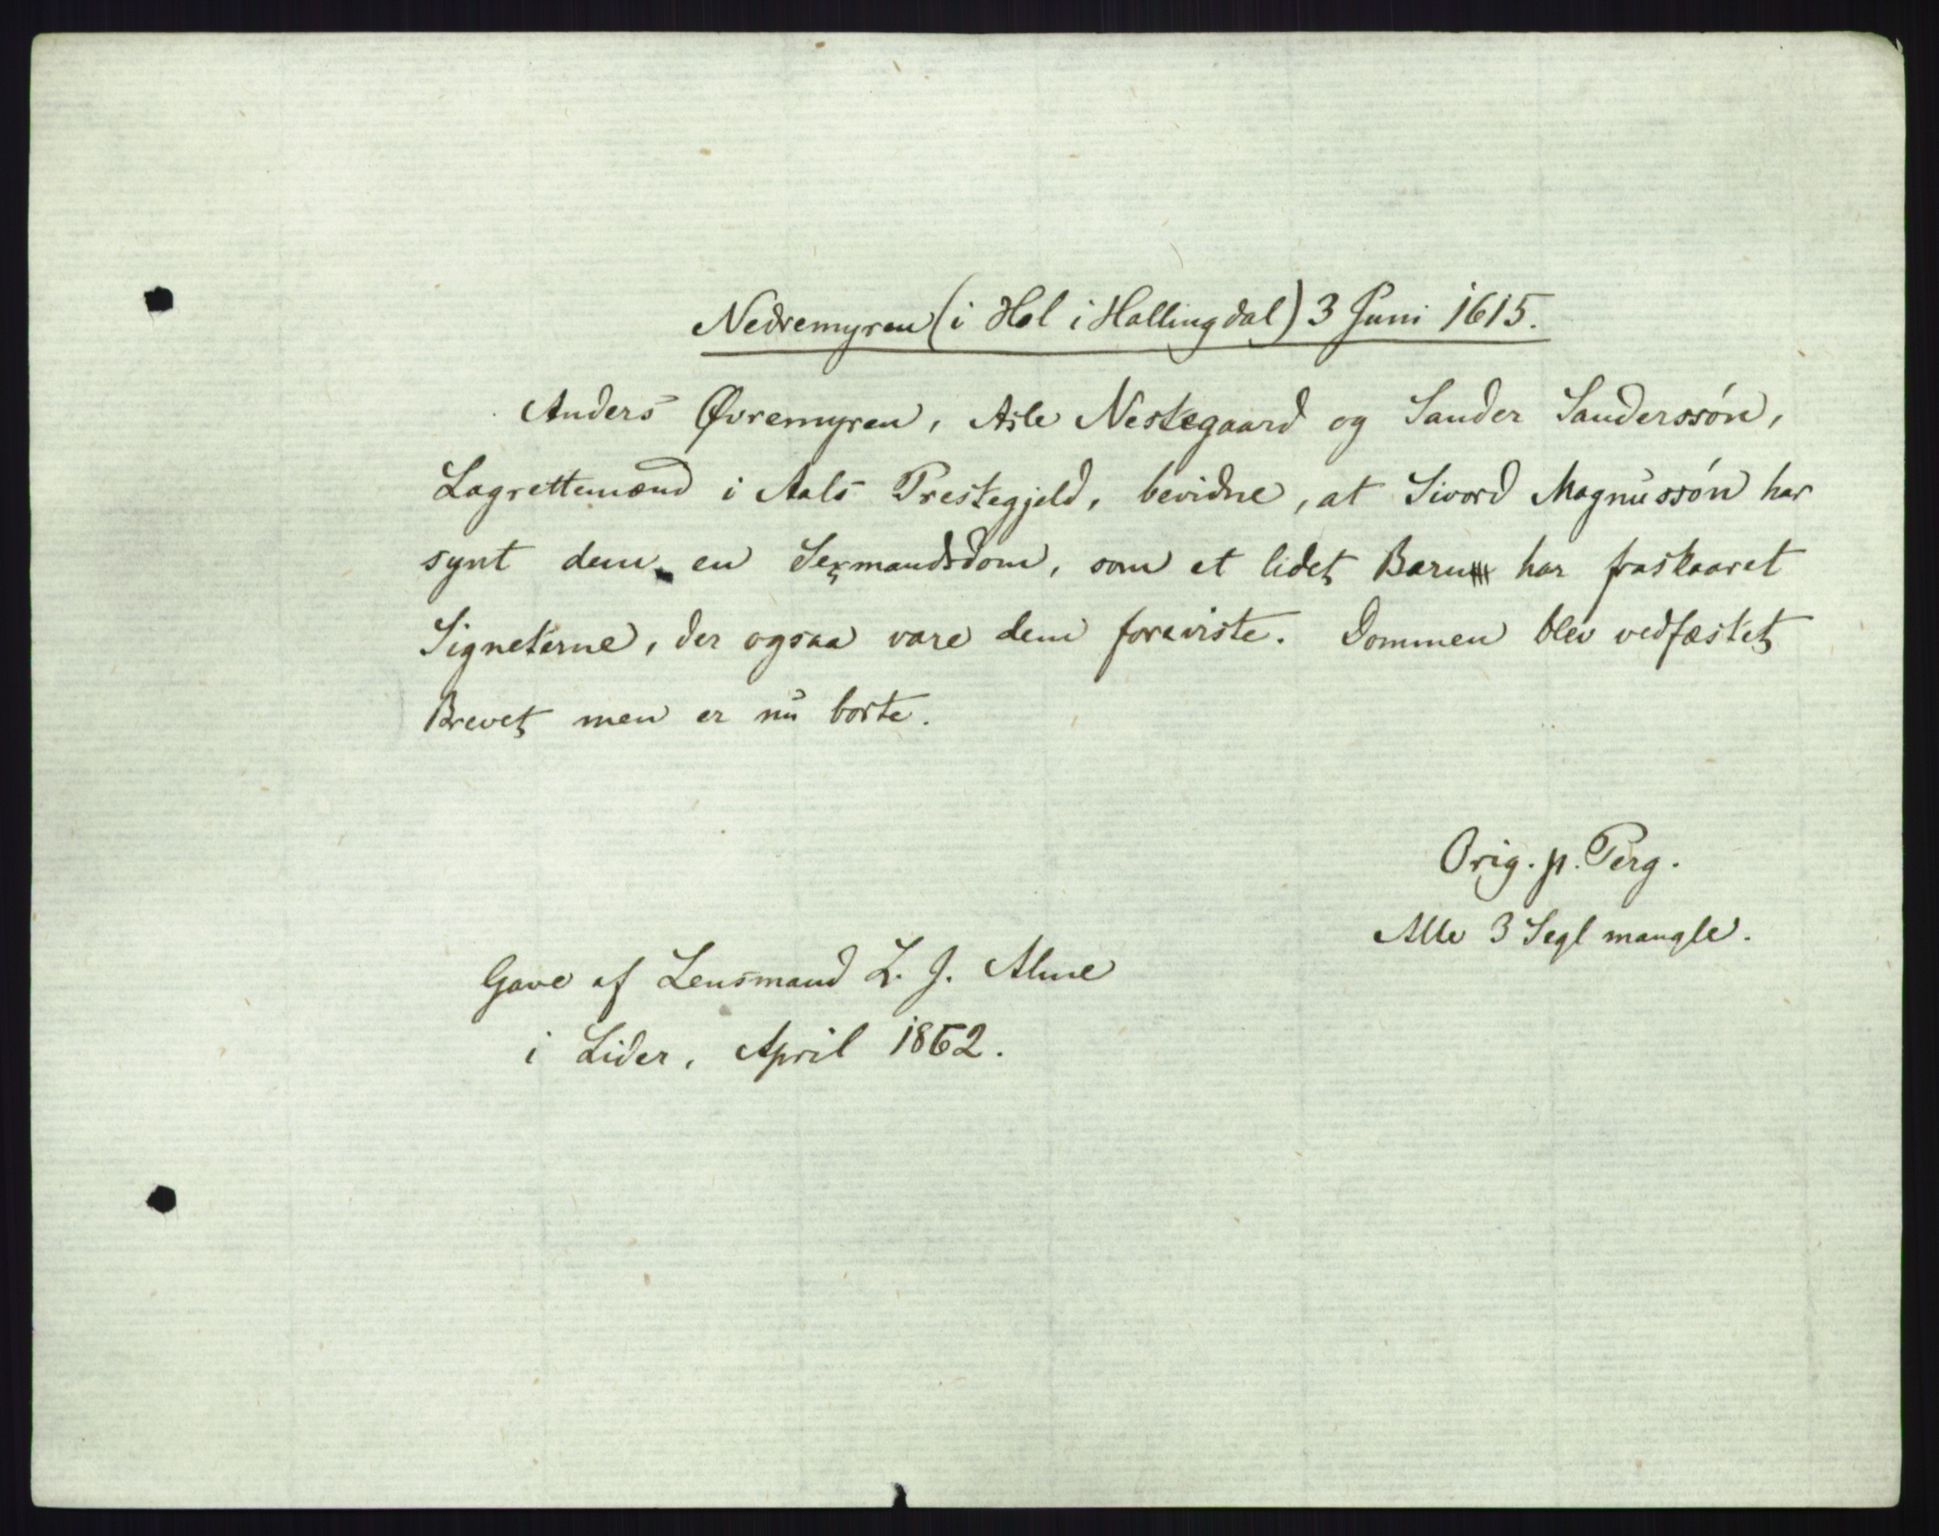 Nedremyren (i Hol i Hallingdal) 3 Juni 1615.
Anders Øvremyren, Asle Nestegaard og Sander Sanderssön,
Lagrettemænd i Aals Prestegjeld, bevidne, at Sivord Magnussön har
synt dem en Sexmandsdom, som et lidet Barn har fraskaaret
Signeterne, der ogsaa vare dem foreviste. Dommen blev vedfæstet
Brevet men er nu borte.
Orig. p. Perg.
Alle 3 Segl mangle.
Gave af Lensmand L. J. Alme
i Lider, April 1862.